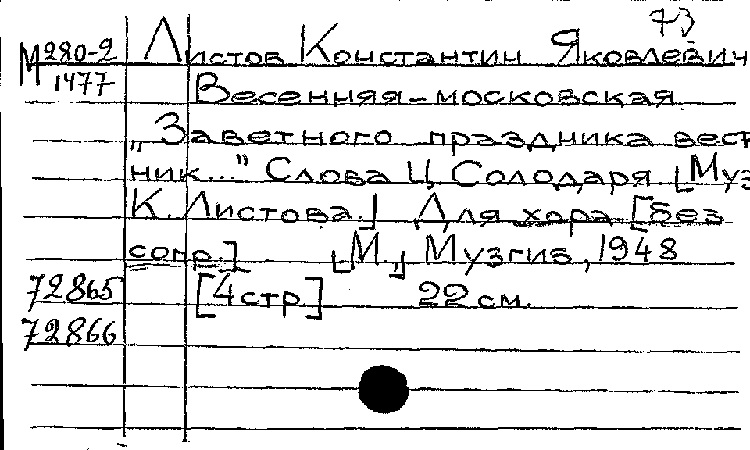 73
М280-2 Листов Константин Яковлевич
1477 Весенняя-московская
„Заветного праздника вест
ник..." Слова Ц. Солодаря [Муз
К. Листова.] Для хора [без
сопр.] [М.,] Музгиз, 1948
72865 [4 стр.] 22 см.
72866